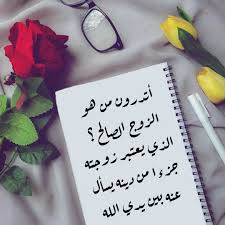 أتدرون من هو
الزوج الصالح ؟
الذي يعتبر زوجته
جزءا من دينه يسأل
عنه بين يدي الله